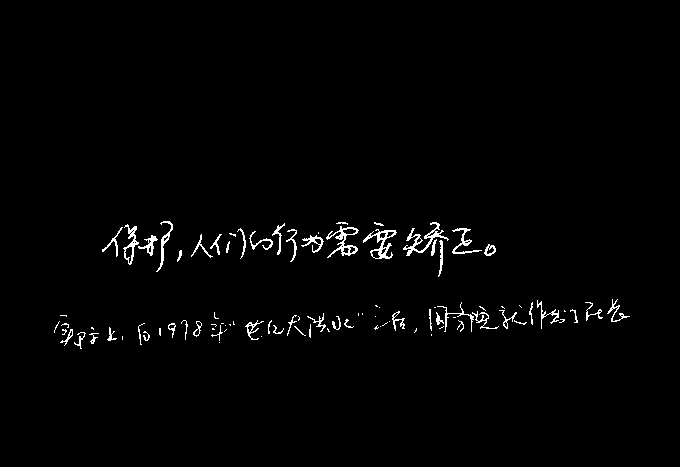 保护,人们的行为需要矫正。
实际上,自1998年“世纪大洪水”之后,国务院就作出了在长